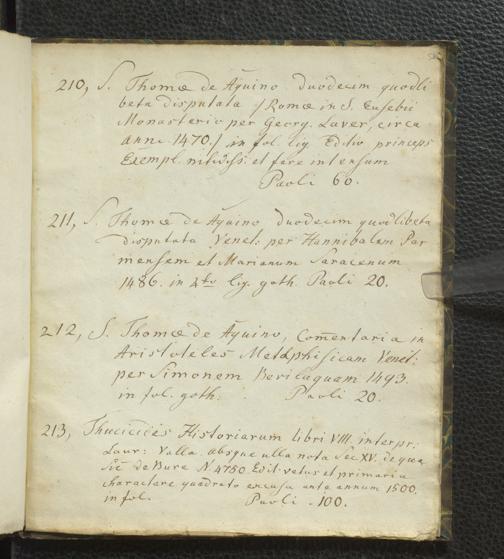 210, S. Thomæ de Aquino duodecim quodli
beta disputata /: Romæ in S. Eusebii
Monasterio per Georg. Laver, circa
ann. 1470. / in fol. lig. Editio princeps
Exempl. nitidiss: et fere intensum
Paoli 60.
211, S. Thomæ de Aquino duodecim quodlibeta
disputata Venet: per Hannibalem Par
mensem et Marianum Saracenum
1486. in 4to lig. goth. Paoli 20.
212, S. Thomæ de Aquino, Comentaria in
Aristoteles Metaphisicam Venet:
per Simonem Bevilaquam 1493.
in fol. goth. Paoli 20.
213, Thucicides Historiarum libri VIII. interpr:
Laur: Valla. absque ulla nota Sec XV. de qua
Sic de Bure N. 4750. Edit. vetus et primaria
charactere quadrato excusa ante annum 1500.
in fol. Paoli .100.